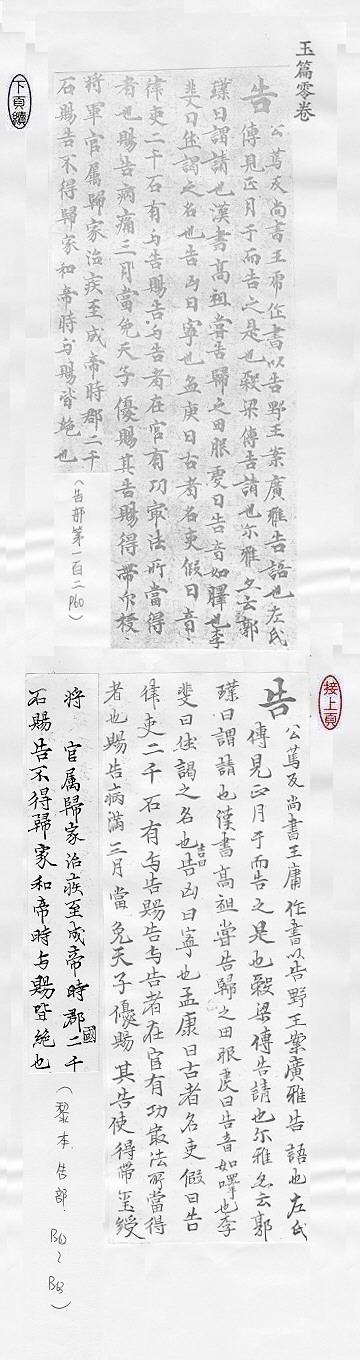 玉篇零卷
告 公蔿反尚書王庸作書以告野王案廣雅告語也左氏
傳見正月于而告之是也穀梁傳告請也尓雅亦云郭
璞曰謂請也漢書高祖嘗告歸之田服虔曰告音如嘷也李
斐曰休謁之名也告凶曰寧也孟康曰古者名吏假曰告
律吏二千石有与告賜告与告者在官有功最法所當得
者也賜告病滿三月當免天子優賜其告賜得帶
將軍官属歸家治疾至成帝時郡二千
石賜告不得歸家和帝時与賜皆絶也
(告部第一百二 P60)
下頁續
接上頁
告 公蔿反尚書王庸作書以告野王案廣雅告語也左氏
傳見正月于而告之是也穀梁傳告請也尓雅亦云郭
璞曰謂請也漢書高祖嘗告歸之田服虔曰告音如嘷也李
斐曰休謁之名也吉曰告凶曰寧也孟康曰古者名吏假曰告
律吏二千石有与告賜告与告者在官有功最法所當得
者也賜告病滿三月當免天子優賜其告使得帶璽綬
將 官属歸家治疾至成帝時郡國二千
石賜告不得歸家和帝時与賜皆絶也
(黎本.告部.